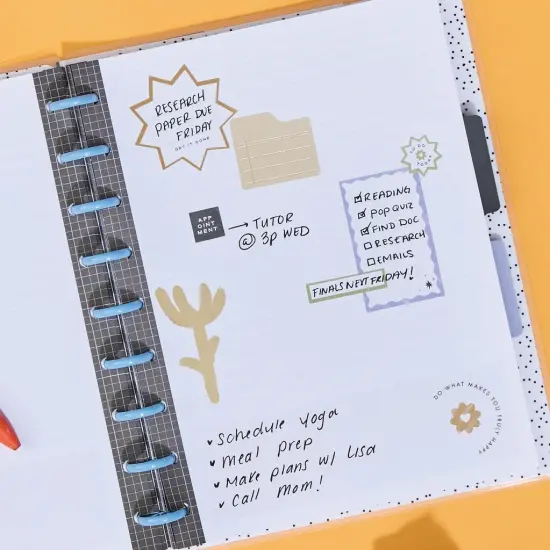 RESEARCH
PAPER DUE
FRIDAY
GET IT DONE
TO DO
TODAY
APP
OINT
MENT
TUTOR
@ 3P WED
READING
POP QUIZ
FIND DOC
RESEARCH
EMAILS
FINALS NEXT FRIDAY!
DO WHAT MAKES YOU TRULY HAPPY
Schedule Yoga
Meal prep
Make plans w/ Lisa
Call Mom!